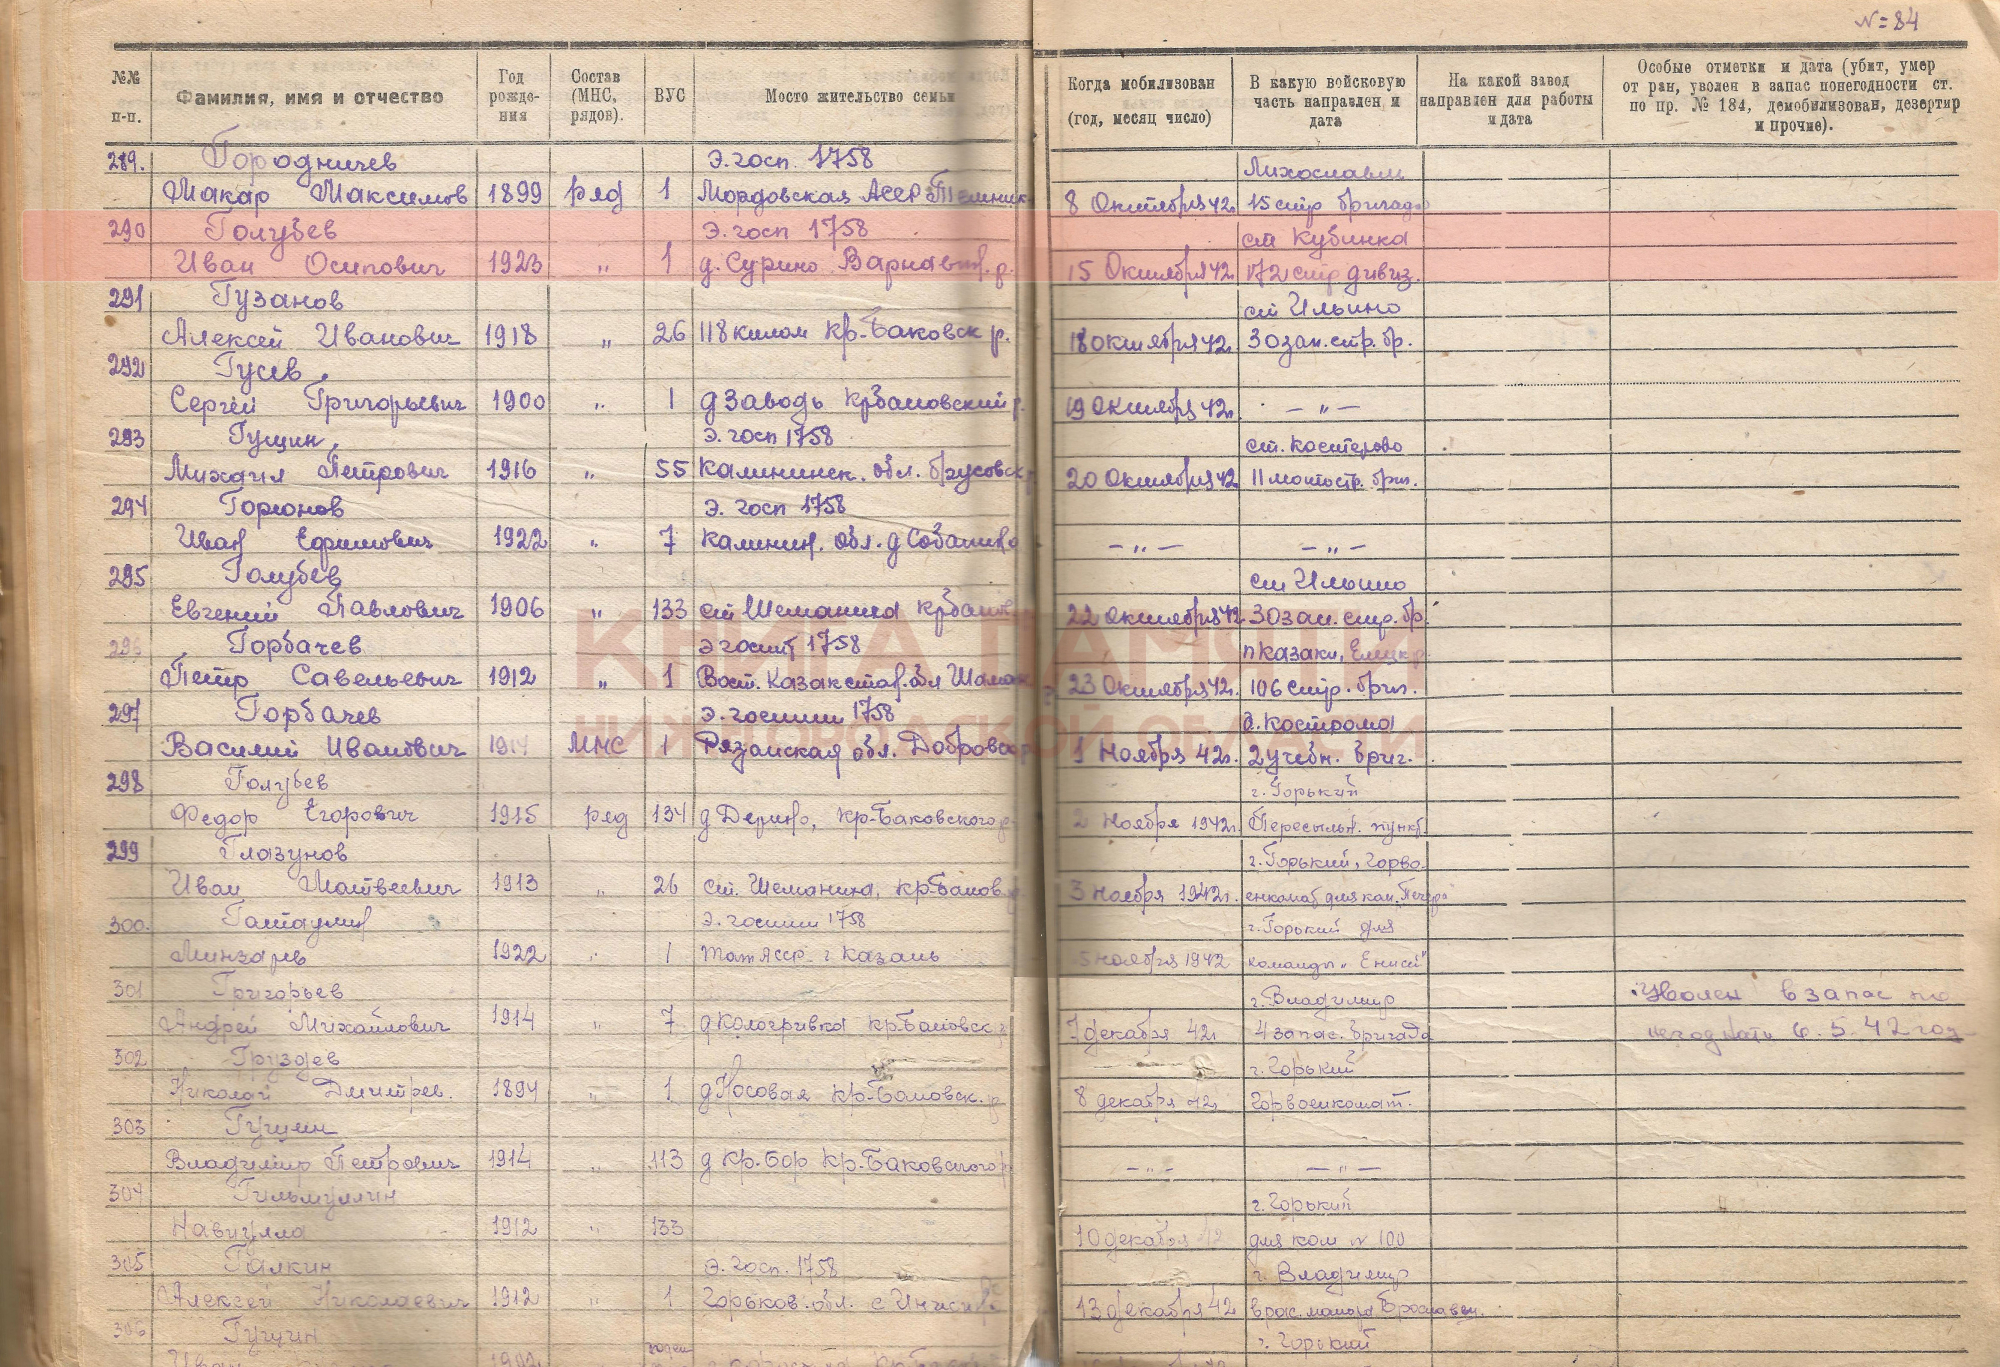 № 84
№№ п-п.
Фамилия, имя и отчество
Год рожде- ния
Состав (МНС, рядов).
ВУС
Мосто жительство семьи
Когда мобилизован (год, месяц число)
В какую войсковую часть направлен и дата
На какой завод направлен для работы и дата
Особые отметки и дата (убит, умер от ран, уволен в запас понегодности ст. по пр. № 184, демобилизован, дезертир и прочие).
289. Городничев Э. госп. 1758 Лихославль
Макар Максимов 1899 ряд 1 Мордовская АССР 8 Октября 42г. 15 стр бригада
290 Голубев Э. госп 1758 ст Кубинка
Иван Осипович 1923 „ 1 д. Сурино Варнавин. р. 15 Октября 42г. 172 стр дивиз.
291 Гузанов ст Ильино
Алексей Иванович 1918 „ 26 118 килом Кр-Баковск р. 18 октября 42г. 30 зап. стр. бр.
292 Гусев
Сергей Григорьевич 1900 „ 1 д Заводь КрБаковский р. 19 Октября 42г. — „ —
293 Гущин Э. госп 1758 ст. Костерово
Михаил Петрович 1916 „ 55 Калининск. обл. 20 Октября 42 11 мотостр. бриг.
294 Горюнов Э. госп 1758
Иван Ефимович 1922 „ 7 Калинин. обл. д — „ — — „ —
295 Голубев ст Ильино
Евгений Павлович 1906 „ 133 ст Шеманиха КрБаков 22 Октября 42 30 зап. стр. бр.
296 Горбачев Э госпит 1758 п Казаки, Елецк р.
Петр Савельевич 1912 „ 1 Вост. Казакстан. обл 23 Октября 42г. 106 стр. бриг.
297 Горбачев Э. госпит 1758 г. Кострома
Василий Иванович 1914 МНС 1 Рязанская обл. 1 Ноября 42г. 2 учебн. бриг.
298 Голубев г. Горький
Федор Егорович 1915 ряд 134 д Дерино, Кр-Баковского р. 2 Ноября 1942г. Пересыльн. пункт
299 Глазунов г. Горький, Горво-
Иван Матвеевич 1913 „ 26 ст. Шеманиха, Кр-Баков. р. 3 Ноября 1942г. енкомат для ком.
300. Гатаулин Э. госпит 1758 г. Горький для
Минзарев 1922 „ 1 Тат АССР г Казань 5 Ноября 1942 команды „Енисей"
301 Григорьев г. Владимир Уволен в запас по
Андрей Михайлович 1914 „ 7 д Кологривка Кр.Баковск. р. 7 декабря 42г. 4 запас. бригада негодности 6. 5. 42 год
302 Груздев г. Горький
Николай Дмитрев. 1894 „ 1 д Носовая Кр-Баковск. р 8 декабря 42г. Горвоенкомат.
303 Гущин
Владимир Петрович 1914 „ 113 д Кр. Бор Кр.Баковского р — „ — — „ —
304 Гильмуллин г. Горький
Навиулла 1912 „ 133 10 декабря 42 для ком № 100
305 Галкин Э. Госп. 1758 г. Владимир
Алексей Николаевич 1912 „ 1 Горьков. обл. с 13 декабря 42
306 Гущин г. Горький
Иван
КНИГА ПАМЯТИ
НИЖЕГОРОДСКОЙ ОБЛАСТИ